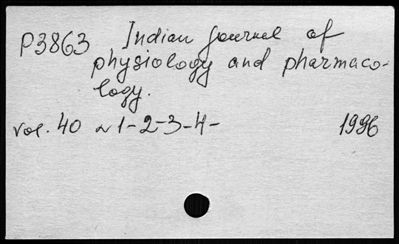 P3863 Indian journal of
physiology and pharmaco-
logy.
vol. 40 N 1-2-3-4- 1996